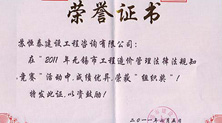 荣誉证书
苏恒泰建设工程咨询有限公司：
在“2011年无锡市工程造价管理法律法规知
识竞赛”活动中，成绩优异，荣获“组织奖”！
特发此证，以资鼓励！